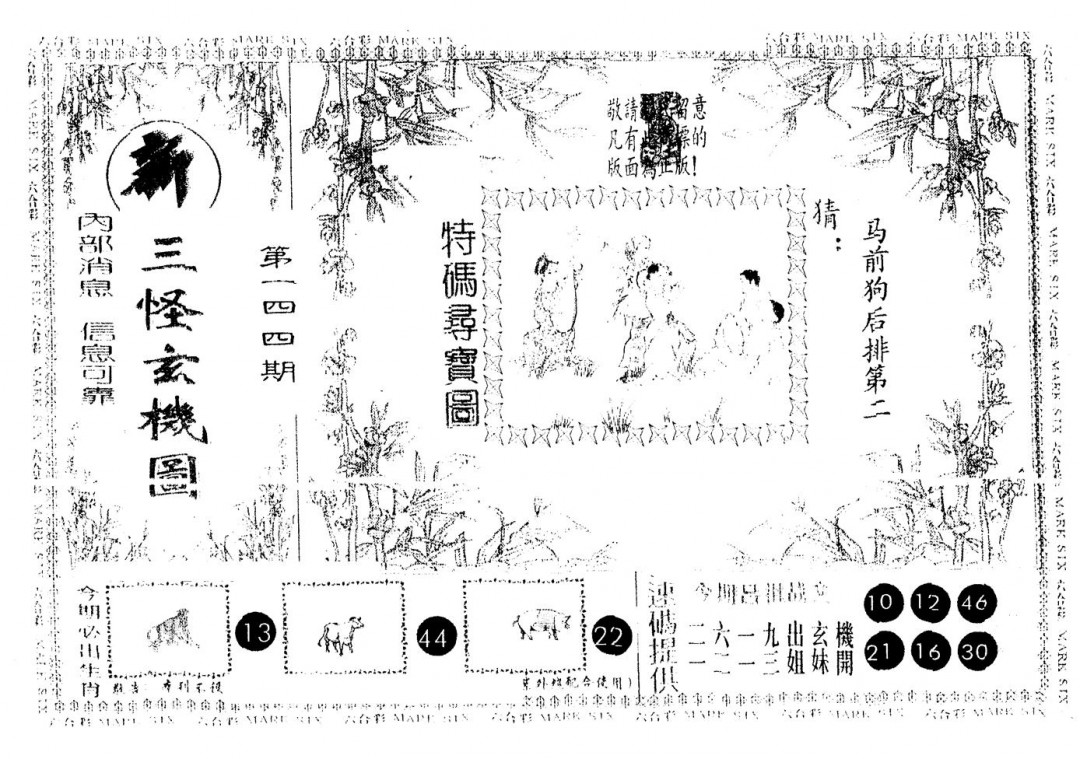 六合彩 MARK SIX
敬請 留意
凡有 標的
版面為正版!
新
三怪玄機圖
內部消息 信息可靠
第一四四期
特碼尋寶圖
猜：
马前狗后排第二
今期必出生肖
13
44
22
配合使用）
連碼提供
今期
機開
玄妹
出姐
九三
一一
六二
二一
10 12 46
21 16 30